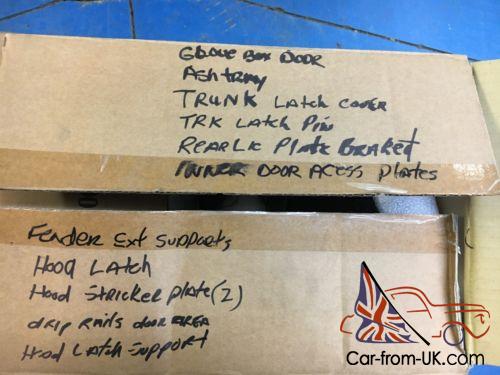 Glove Box Door
Ashtray
TRUNK LATCH COVER
TRK LATCH PIN
REAR LIC PLATE BRAKET
INNER DOOR ACESS PLATES
Fender Ext Supports
Hood LATCH
Hood STRICKER PLATE (2)
drip RAILS door AREA
Hood LATCH SUPPORT
Car-from-UK.com